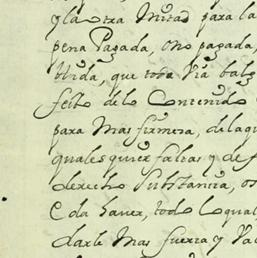 y la otra Mitad para la
pena Pagada, o no pagada,
que toda Via
de lo Contenido
para Mas firmesa, de la qu
quales quier faltas y de f
derecho Substancia, o
haver, todo Lo qual
darle Mas fuerza y Va